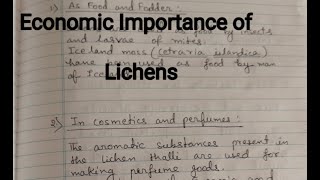 1) As Food and Fodder :
Economic Importance of
food by insects
and larvae of mites.
Iceland moss (Cetraria islandica)
have been used as food by man
of Ice
Lichens
2) In cosmetics and perfumes :
The aromatic substances present in
the lichen thalli are used for
making perfume goods.
and